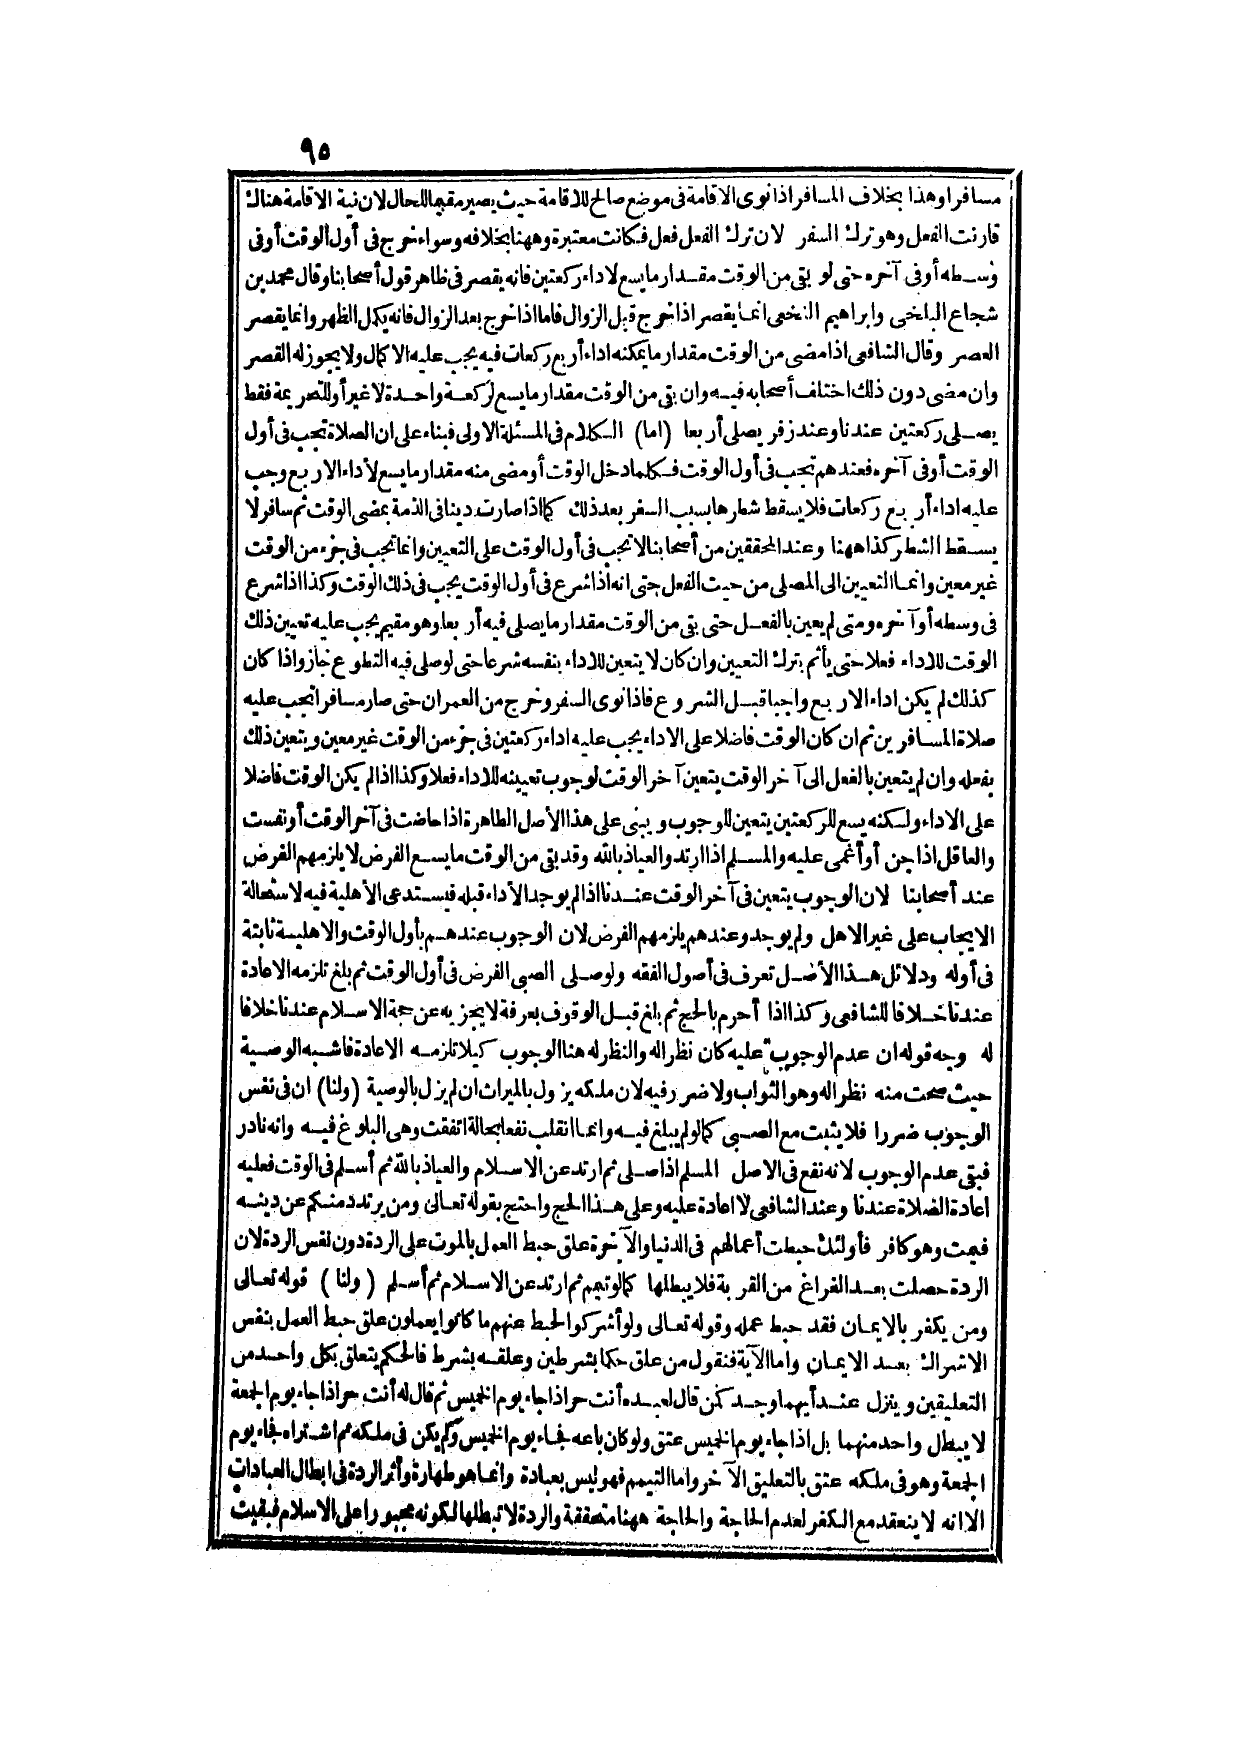 ٩٥
مسافرا وهذا بخلاف المسافر اذا نوى الاقامة فى موضع صالح للاقامة حيث يصير مقيما للحال لان نية الاقامة هناك
قارنت الفعل وهو ترك السفر لان ترك الفعل فعل فكانت معتبرة وههنا بخلافه وسواء خرج فى أول الوقت أو فى
وسطه أو فى آخره حتى لو بقى من الوقت مقدار ما يسع لاداء ركعتين فانه يقصر فى ظاهر قول أصحابنا وقال محمد بن
شجاع البلخى وابراهيم النخعى انما يقصر اذا خرج قبل الزوال فاما اذا خرج بعد الزوال فانه يكمل الظهر وانما يقصر
العصر وقال الشافعى اذا مضى من الوقت مقدار ما يمكنه اداء أربع ركعات فيه يجب عليه الاكمال ولا يجوز له القصر
وان مضى دون ذلك اختلف أصحابه فيه وان بقى من الوقت مقدار ما يسع لركعة واحدة لا غير أو للتحريمة فقط
يصلى ركعتين عندنا وعند زفر يصلى أربعا (اما) الكلام فى المسئلة الاولى فبناء على ان الصلاة تجب فى أول
الوقت أو فى آخره فعندهم تجب فى أول الوقت فكلما دخل الوقت أو مضى منه مقدار ما يسع لأداء الاربع وجب
عليه اداء أربع ركعات فلا يسقط شطرها بسبب السفر بعد ذلك كما اذا صارت دينا فى الذمة بمضى الوقت ثم سافر لا
يسقط الشطر كذا ههنا وعند المحققين من أصحابنا لا تجب فى أول الوقت على التعيين وانما تجب فى جزء من الوقت
غير معين وانما التعيين الى المصلى من حيث الفعل حتى انه اذا شرع فى أول الوقت يجب فى ذلك الوقت وكذا اذا شرع
فى وسطه أو آخره ومتى لم يعين بالفعل حتى بقى من الوقت مقدار ما يصلى فيه أربعا وهو مقيم يجب عليه تعيين ذلك
الوقت للاداء فعلا حتى يأثم بترك التعيين وان كان لا يتعين للاداء بنفسه شرعا حتى لو صلى فيه التطوع جاز واذا كان
كذلك لم يكن اداء الاربع واجبا قبل الشروع فاذا نوى السفر وخرج من العمران حتى صار مسافرا تجب عليه
صلاة المسافرين ثم ان كان الوقت فاضلا على الاداء يجب عليه اداء ركعتين فى جزء من الوقت غير معين ويتعين ذلك
بفعله وان لم يتعين بالفعل الى آخر الوقت يتعين آخر الوقت لوجوب تعيينه للاداء فعلا وكذا اذا لم يكن الوقت فاضلا
على الاداء ولكنه يسع للركعتين يتعين للوجوب ويبنى على هذا الأصل الطاهرة اذا حاضت فى آخر الوقت أو نفست
والعاقل اذا جن أو أغمى عليه والمسلم اذا ارتد والعياذ بالله وقد بقى من الوقت ما يسع الفرض لا يلزمهم الفرض
عند أصحابنا لان الوجوب يتعين فى آخر الوقت عندنا اذا لم يوجد الأداء قبله فيستدعى الأهلية فيه لاستحالة
الايجاب على غير الاهل ولم يوجد وعندهم يلزمهم الفرض لان الوجوب عندهم بأول الوقت والاهلية ثابتة
فى أوله ودلائل هذا الأصل تعرف فى أصول الفقه ولو صلى الصبى الفرض فى أول الوقت ثم بلغ تلزمه الاعادة
عندنا خلافا للشافعى وكذا اذا أحرم بالحج ثم بلغ قبل الوقوف بعرفة لا يجزيه عن حجة الاسلام عندنا خلافا
له وجه قوله ان عدم الوجوب عليه كان نظرا له والنظر له هنا الوجوب كيلا تلزمه الاعادة فاشبه الوصية
حيث صحت منه نظرا له وهو الثواب ولا ضرر فيه لان ملكه يزول بالميراث ان لم يزل بالوصية (ولنا) ان فى نفس
الوجوب ضررا فلا يثبت مع الصبى كما لو لم يبلغ فيه وانما انقلب نفعا بحالة اتفقت وهى البلوغ فيه وانه نادر
فبقى عدم الوجوب لانه نفع فى الاصل المسلم اذا صلى ثم ارتد عن الاسلام والعياذ بالله ثم أسلم فى الوقت فعليه
اعادة الصلاة عندنا وعند الشافعى لا اعادة عليه وعلى هذا الحج واحتج بقوله تعالى ومن يرتدد منكم عن دينه
فيمت وهو كافر فأولئك حبطت أعمالهم فى الدنيا والآخرة علق حبط العمل بالموت على الردة دون نفس الردة لان
الردة حصلت بعد الفراغ من القربة فلا يبطلها كما لو تيمم ثم ارتد عن الاسلام ثم أسلم (ولنا) قوله تعالى
ومن يكفر بالايمان فقد حبط عمله وقوله تعالى ولو أشركوا لحبط عنهم ما كانوا يعملون علق حبط العمل بنفس
الاشراك بعد الايمان واما الآية فنقول من علق حكما بشرطين وعلقه بشرط فالحكم يتعلق بكل واحد من
التعليقين وينزل عند أيهما وجد كمن قال لعبده أنت حر اذا جاء يوم الخميس ثم قال له أنت حر اذا جاء يوم الجمعة
لا يبطل واحد منهما بل اذا جاء يوم الخميس عتق ولو كان باعه فجاء يوم الخميس ولم يكن فى ملكه ثم اشتراه فجاء يوم
الجمعة وهو فى ملكه عتق بالتعليق الآخر واما التيمم فهو ليس بعبادة وانما هو طهارة وأثر الردة فى ابطال العبادات
الا انه لا ينعقد مع الكفر لعدم الحاجة والحاجة ههنا متحققة والردة لا تبطلها لكونه مجبورا على الاسلام فبقيت